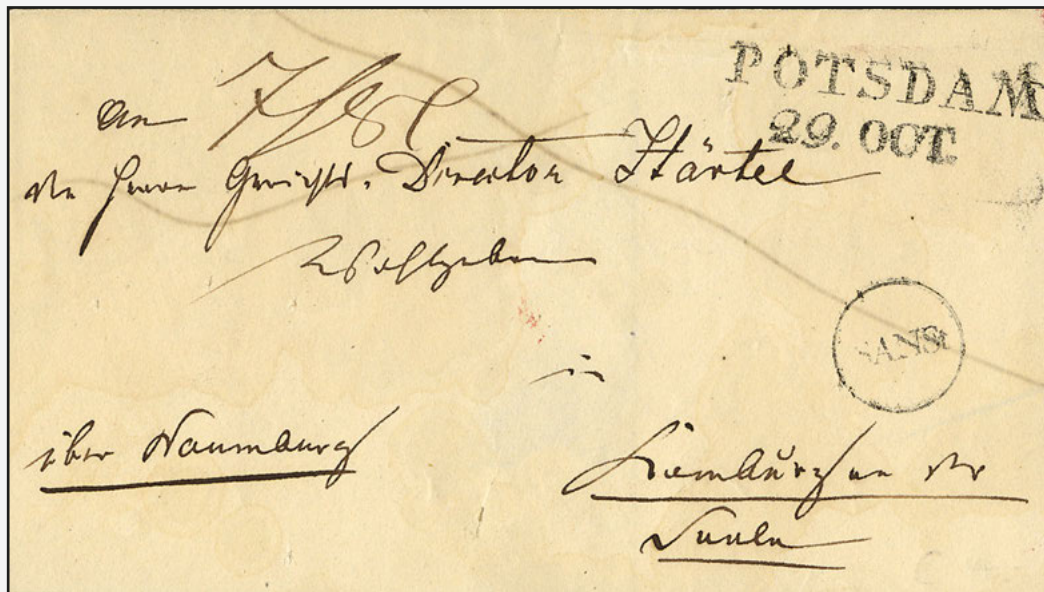 POTSDAM
29. OCT.
An
den Herrn Gerichts-Director Härtel
Wohlgeboren
in
SANS
über Naumburg
an der
Saale